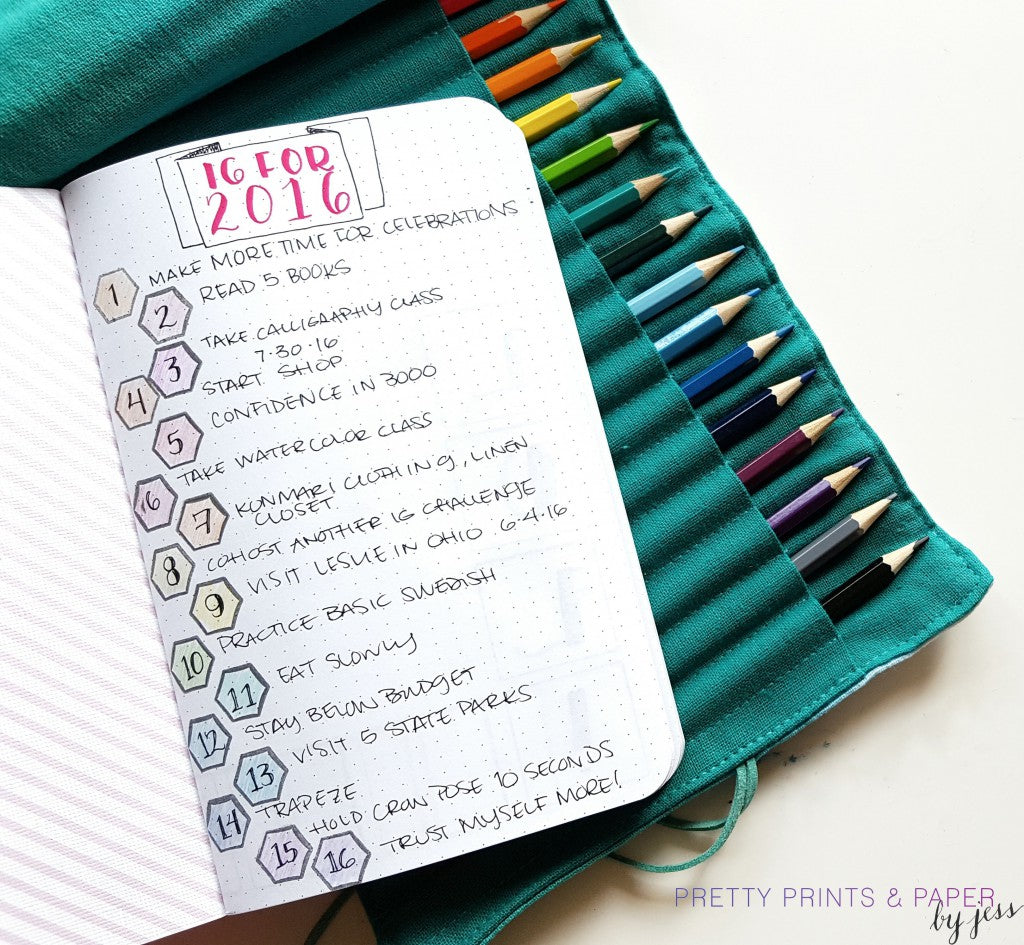 16 FOR
2016
1 MAKE MORE TIME FOR CELEBRATIONS
2 READ 5 BOOKS
3 TAKE CALLIGRAPHY CLASS
7.30.16
4 START SHOP
5 CONFIDENCE IN 3000
6 TAKE WATERCOLOR CLASS
7 KONMARI CLOTHING, LINEN
CLOSET
8 COHOST ANOTHER IG CHALLENGE
9 VISIT LESLIE IN OHIO 6.4.16
10 PRACTICE BASIC SWEDISH
11 EAT SLOWLY
12 STAY BELOW BUDGET
13 VISIT 5 STATE PARKS
14 TRAPEZE
15 HOLD CROW POSE 10 SECONDS
16 TRUST MYSELF MORE!
PRETTY PRINTS & PAPER
by jess